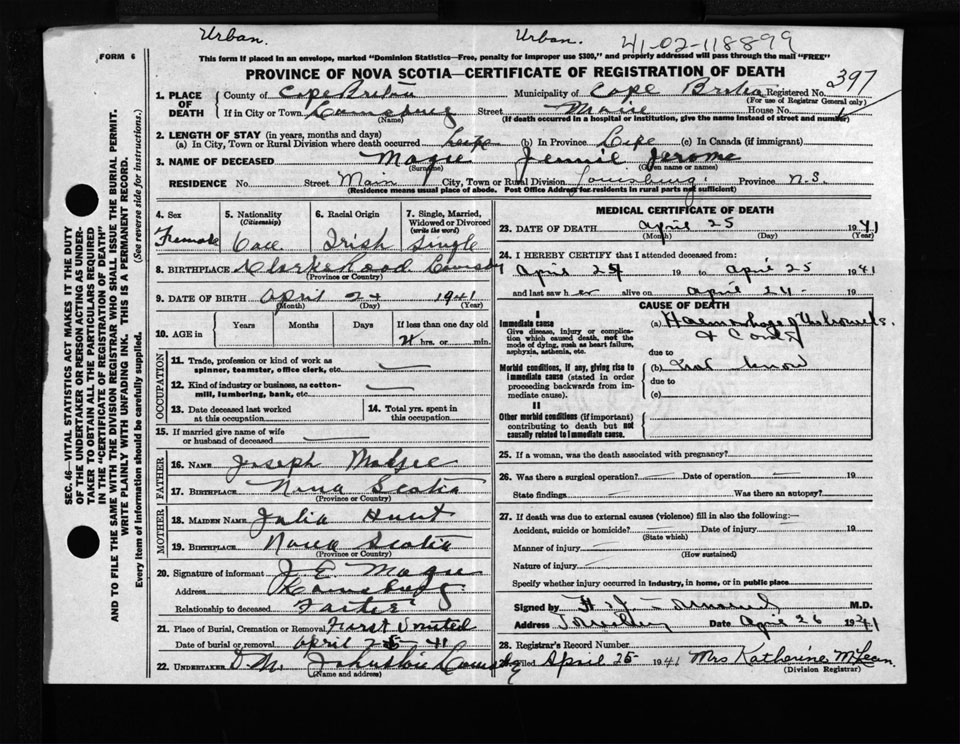 Urban. Urban. 41-02-118899
FORM 6 This form if placed in an envelope, marked "Dominion Statistics—Free, penalty for improper use $300," and properly addressed will pass through the mail "FREE"
PROVINCE OF NOVA SCOTIA—CERTIFICATE OF REGISTRATION OF DEATH
397
1. PLACE OF DEATH County of Cape Breton Municipality of Cape Breton Registered No.
(For use of Registrar General only)
If in City or Town Louisburg Street Main House No.
(Name) (If death occurred in a hospital or institution, give the name instead of street and number)
2. LENGTH OF STAY (in years, months and days)
(a) In City, Town or Rural Division where death occurred Life (b) In Province Life (c) In Canada (if immigrant)
3. NAME OF DECEASED Magee Jennie Jerome
(Surname) (Given name or names)
RESIDENCE No. Street Main City, Town or Rural Division Louisburg Province N.S.
(Residence means usual place of abode. Post Office Address for residents in rural parts not sufficient)
4. Sex Female
5. Nationality (Citizenship)
6. Racial Origin Irish
7. Single, Married, Widowed or Divorced (write the word) Single
8. BIRTHPLACE
(Province or Country)
9. DATE OF BIRTH April 24 1941
(Month) (Day) (Year)
10. AGE in Years Months Days If less than one day old
hrs. or min.
OCCUPATION
11. Trade, profession or kind of work as spinner, teamster, office clerk, etc.
12. Kind of industry or business, as cotton-mill, lumbering, bank, etc.
13. Date deceased last worked at this occupation
14. Total yrs. spent in this occupation
15. If married give name of wife or husband of deceased
FATHER
16. NAME Joseph Magee
17. BIRTHPLACE Nova Scotia
(Province or Country)
MOTHER
18. MAIDEN NAME Julia Hunt
19. BIRTHPLACE Nova Scotia
(Province or Country)
20. Signature of informant J. E. Magee
Address Louisburg
Relationship to deceased Father
21. Place of Burial, Cremation or Removal First United
Date of burial or removal April 25 41
22. UNDERTAKER D. M. Johnston Louisburg
(Name and address)
MEDICAL CERTIFICATE OF DEATH
23. DATE OF DEATH April 25 1941
(Month) (Day) (Year)
24. I HEREBY CERTIFY that I attended deceased from:
April 24 19 to April 25 1941
and last saw her alive on April 24 - 19
CAUSE OF DEATH
I
Immediate cause
Give disease, injury or complication which caused death, not the mode of dying, such as heart failure, asphyxia, asthenia, etc.
(a) Haemorrhage of the bowels
due to
Morbid conditions, if any, giving rise to immediate cause (stated in order proceeding backwards from immediate cause).
(b) know
due to
(c)
II
Other morbid conditions (if important) contributing to death but not causally related to immediate cause.
25. If a woman, was the death associated with pregnancy?
26. Was there a surgical operation? Date of operation 19
State findings Was there an autopsy?
27. If death was due to external causes (violence) fill in also the following:—
Accident, suicide or homicide? Date of injury 19
(State which)
Manner of injury
(How sustained)
Nature of injury
Specify whether injury occurred in industry, in home, or in public place
Signed by M.D.
Address Louisburg Date April 26 1941
28. Registrar's Record Number
Filed April 25 - 1941 Mrs Katherine McLean
(Division Registrar)
SEC. 46—VITAL STATISTICS ACT MAKES IT THE DUTY
OF THE UNDERTAKER OR PERSON ACTING AS UNDERTAKER TO OBTAIN ALL THE PARTICULARS REQUIRED
IN THE "CERTIFICATE OF REGISTRATION OF DEATH"
AND TO FILE THE SAME WITH THE DIVISION REGISTRAR WHO SHALL ISSUE THE BURIAL PERMIT.
WRITE PLAINLY WITH UNFADING INK. THIS IS A PERMANENT RECORD.
Every item of information should be carefully supplied. (See reverse side for instructions.)